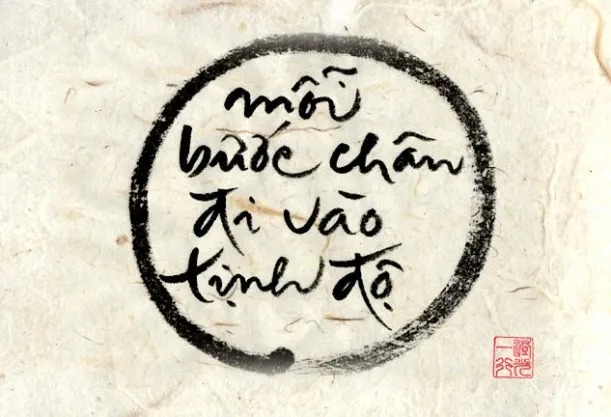 mỗi
bước chân
đi vào
tịnh độ
澄光
一行